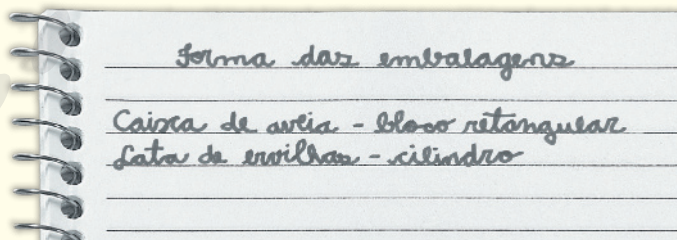 Forma das embalagens
Caixa de aveia - bloco retangular
Lata de ervilhas - cilindro